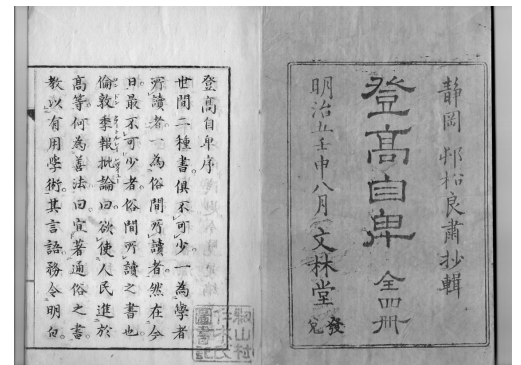 静岡 邨松良肅抄輯
登髙自卑 全四冊
明治五壬申八月 文林堂 發兌
登髙自卑序
世間二種書俱不可少。一為學者
所讀者。一為俗間所讀者。然在今
日最不可少者俗間所讀之書也。
倫敦季報批論曰欲使人民進於
髙等何為善法。曰宜著通俗之書
教以有用學術。其言語務令明白。